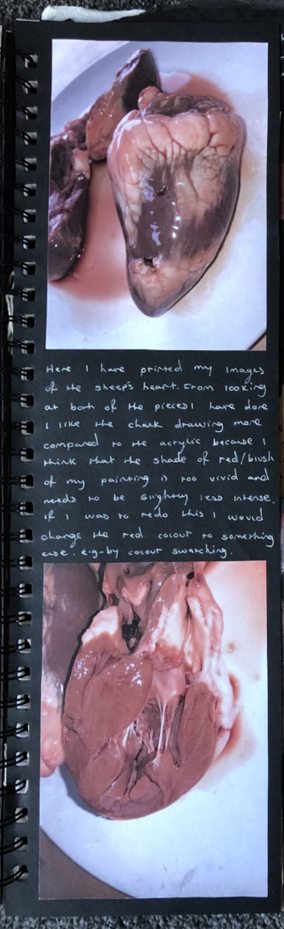 Here I have printed my images
of the sheep's heart. From looking
at both of the pieces I have done
I like the chalk drawing more
compared to the acrylic because I
think that the shade of red/blush
of my painting is too vivid and
needs to be slightly less intense.
If I was to redo this I would
change the red colour to something
else. e.g-by colour swatching.